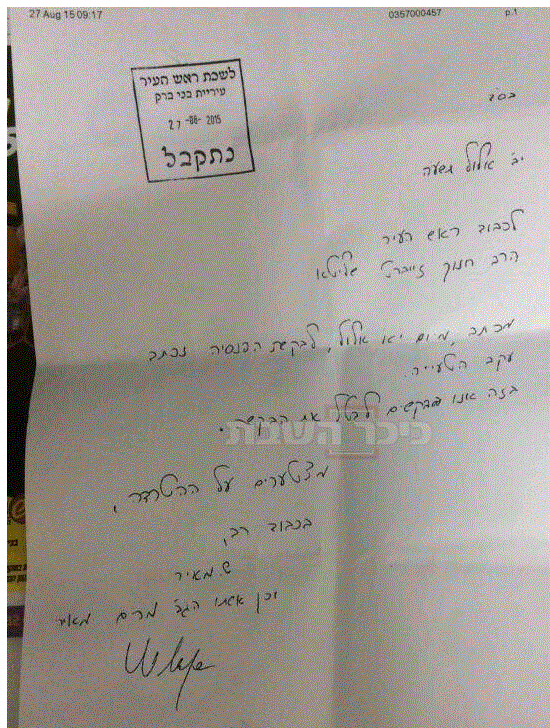 27 Aug 15 09:17 0357000457 p.1
לשכת ראש העיר
עיריית בני ברק
27 -08- 2015
נתקבל
בס"ד
יב' אלול תשעה
לכבוד ראש העיר
הרב חנוך זייברט שליט"א
מכתב מיום יא' אלול, לבקשת הפנסיה נכתב
עקב הטעייה.
בזה אנו מבקשים לבטל את הבקשה.
כיכר השבת
מצטערים על ההטרדה,
בכבוד רב,
ש. מאיר
וכן אשתו הגב' מרים מאיר